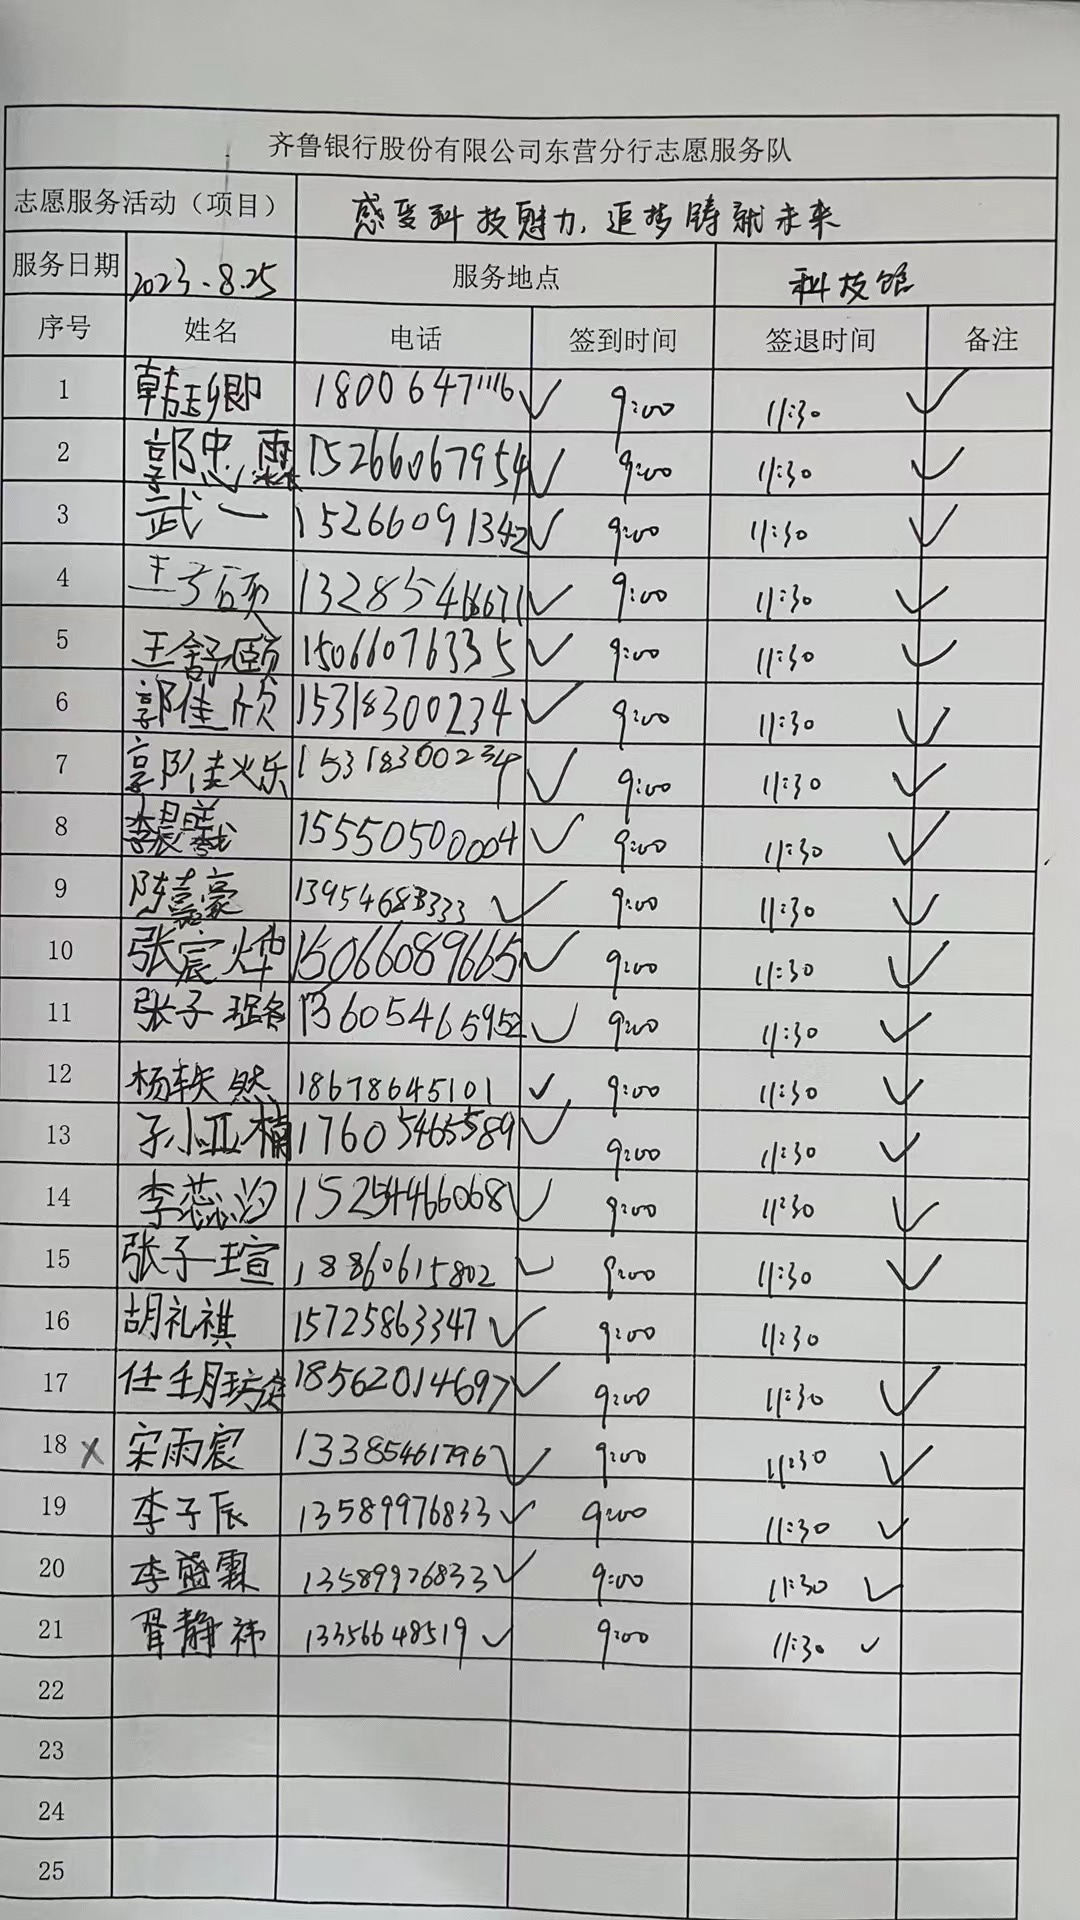 齐鲁银行股份有限公司东营分行志愿服务队
志愿服务活动（项目） 感受科技魅力，追梦铸就未来
服务日期 2023.8.25 服务地点 科技馆
序号 姓名 电话 签到时间 签退时间 备注
1 韩玉卿 18006471116 ✓ 9:00 11:30 ✓
2 郭忠霖 15266067954 ✓ 9:00 11:30 ✓
3 武一 15266091342 ✓ 9:00 11:30 ✓
4 王子硕 13285416671 ✓ 9:00 11:30 ✓
5 王舒颐 15066076335 ✓ 9:00 11:30 ✓
6 郭佳欣 15318300234 ✓ 9:00 11:30 ✓
7 郭佳烁 15318300234 ✓ 9:00 11:30 ✓
8 15550500004 ✓ 9:00 11:30 ✓
9 陈嘉豪 13954683333 ✓ 9:00 11:30 ✓
10 张宸炜 15066089665 ✓ 9:00 11:30 ✓
11 张子璐 13605465952 ✓ 9:00 11:30 ✓
12 杨轶然 18678645101 ✓ 9:00 11:30 ✓
13 孙亚楠 17605465589 ✓ 9:00 11:30 ✓
14 李蕊汐 15254466068 ✓ 9:00 11:30 ✓
15 张子瑄 18860615802 ✓ 9:00 11:30 ✓
16 胡礼祺 15725863347 ✓ 9:00 11:30
17 任 18562014697 ✓ 9:00 11:30 ✓
18 × 宋雨宸 13385461796 ✓ 9:00 11:30 ✓
19 李子辰 13589976833 ✓ 9:00 11:30 ✓
20 李盛霖 13589976833 ✓ 9:00 11:30 ✓
21 胥静祎 13356648519 ✓ 9:00 11:30 ✓
22
23
24
25